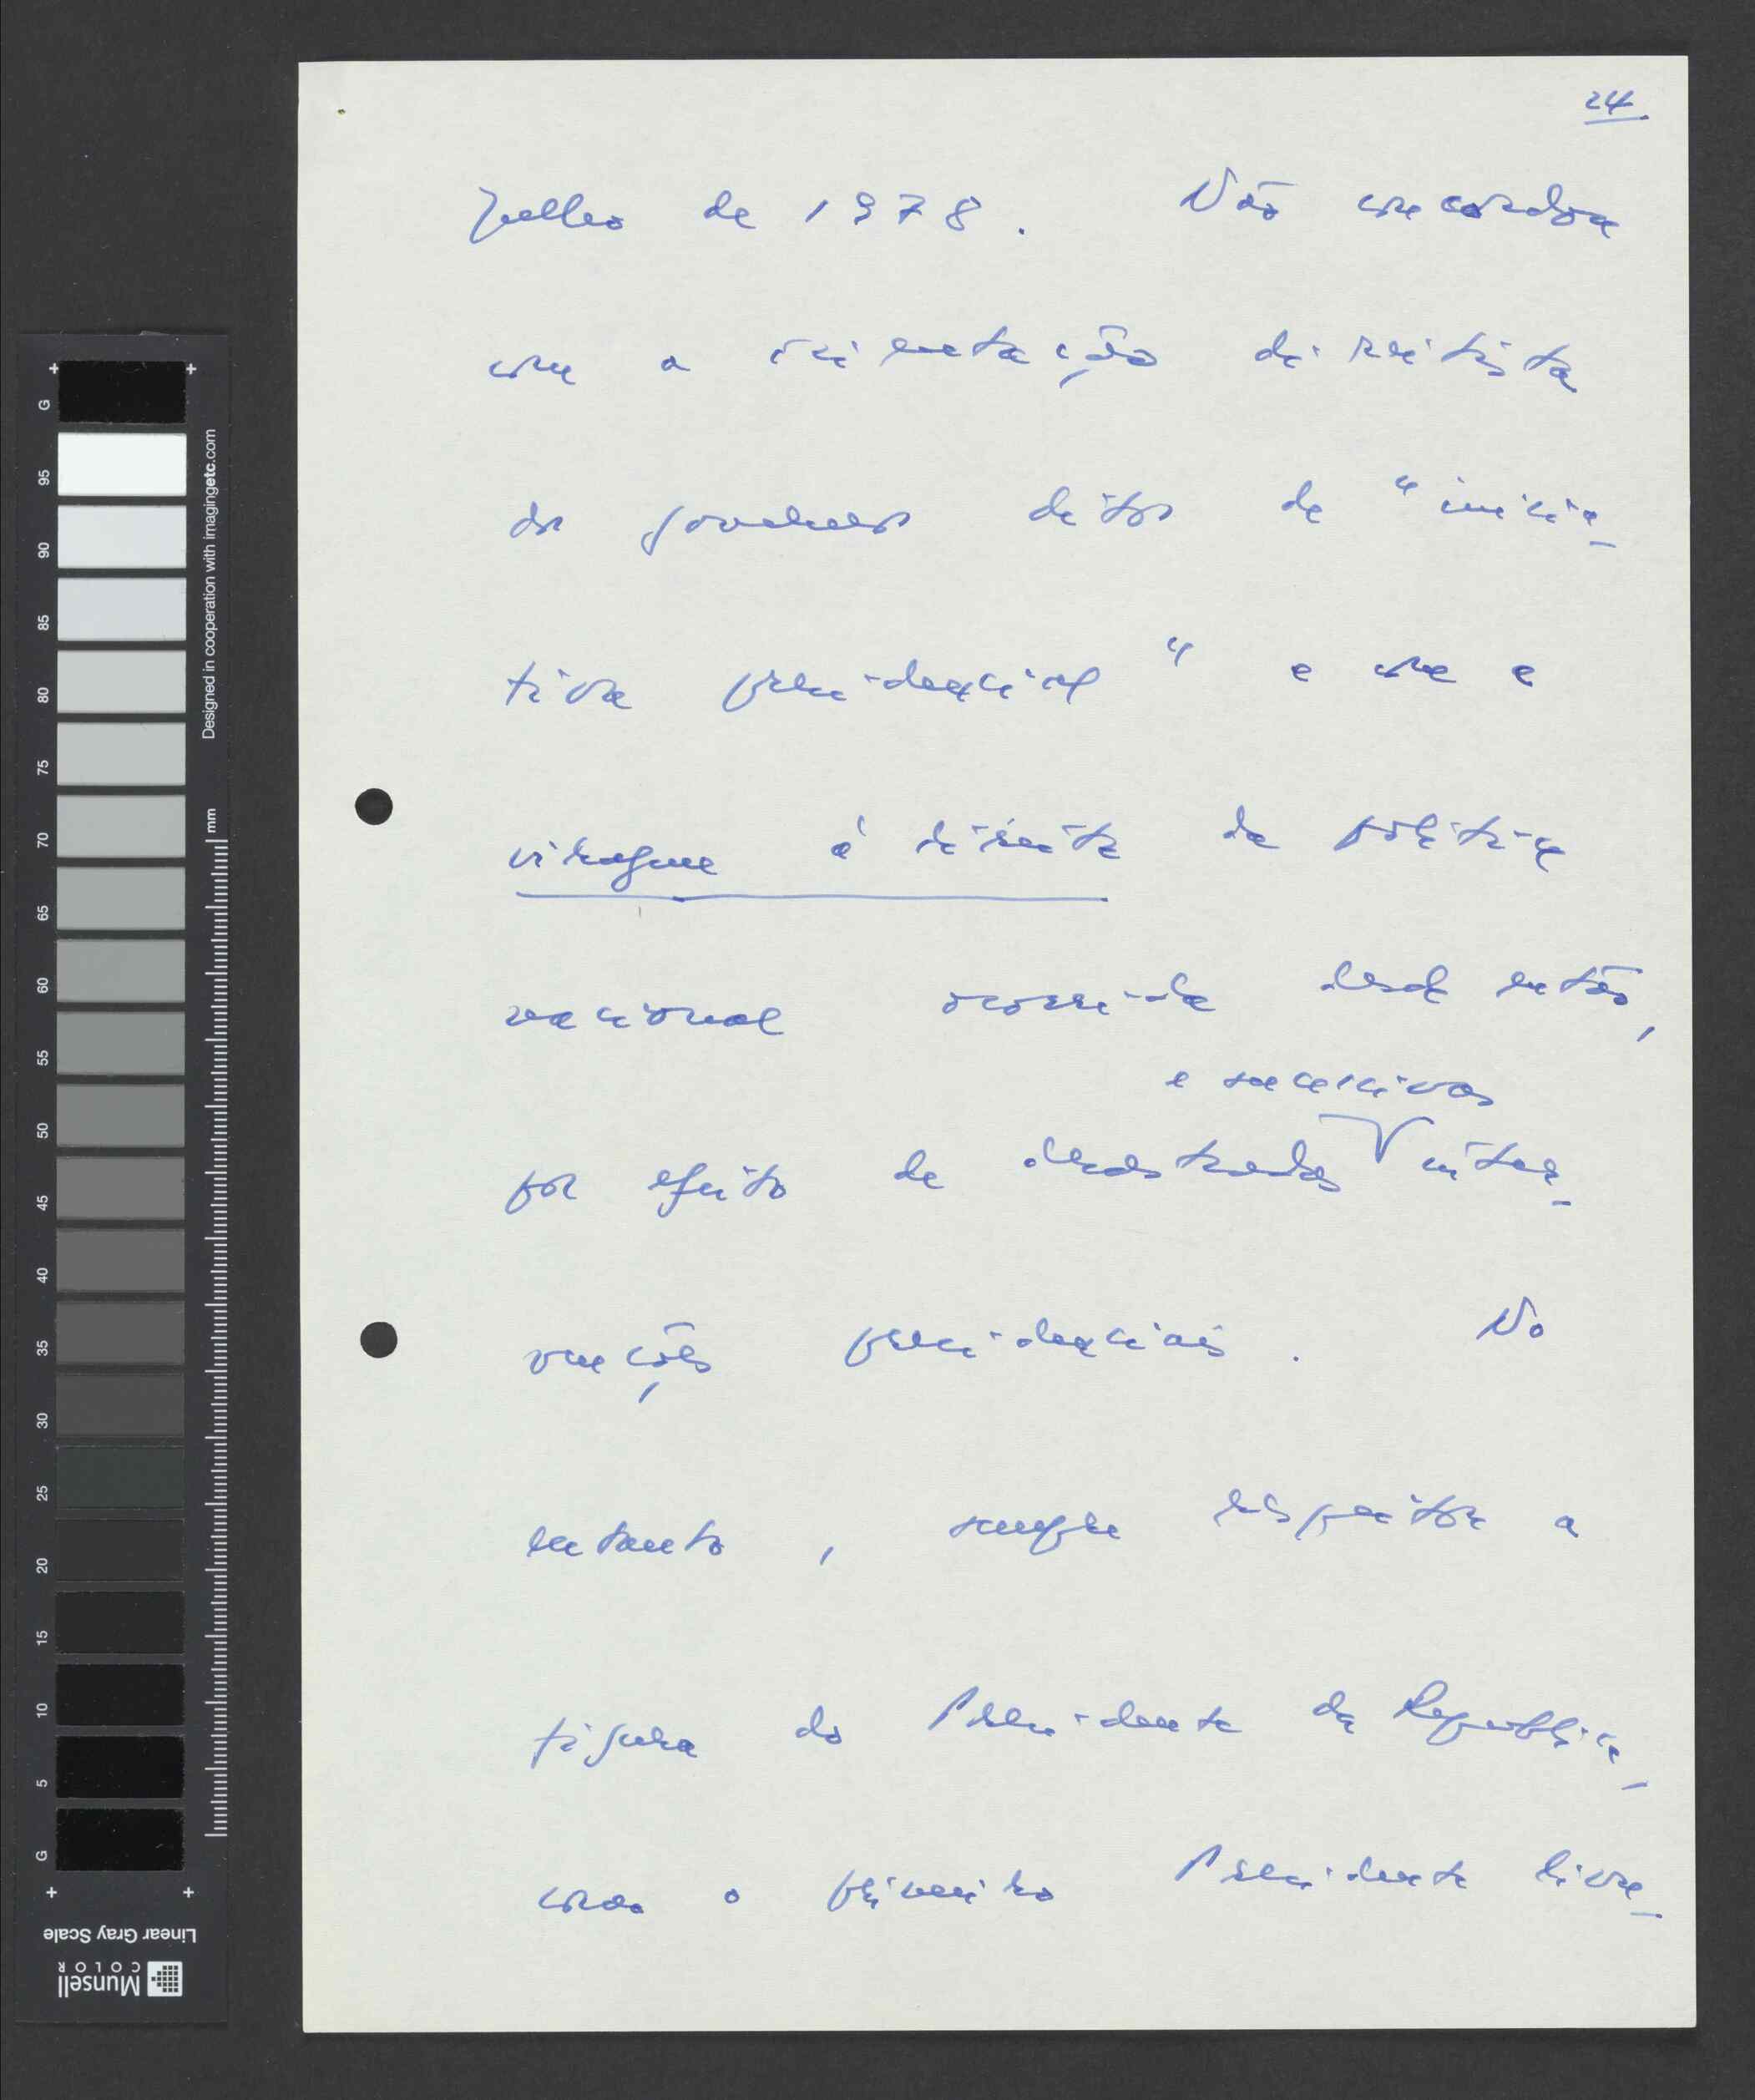 24
Julho de 1978. Não concordo
com a orientação direitista
dos governos ditos de "inicia-
tiva presidencial" e com a
viragem à direita da política
nacional ocorrida desde então,
e sucessivas
por efeito de desastradas inter-
venções presidenciais. No
entanto, sempre respeitei a
figura do Presidente da República,
como o primeiro Presidente livre-
G
95
90
85
80
75
70
65
60
55
50
45
40
35
30
25
20
15
10
5
G
Designed in cooperation with imagingetc.com
mm
Linear Gray Scale
Munsell
COLOR